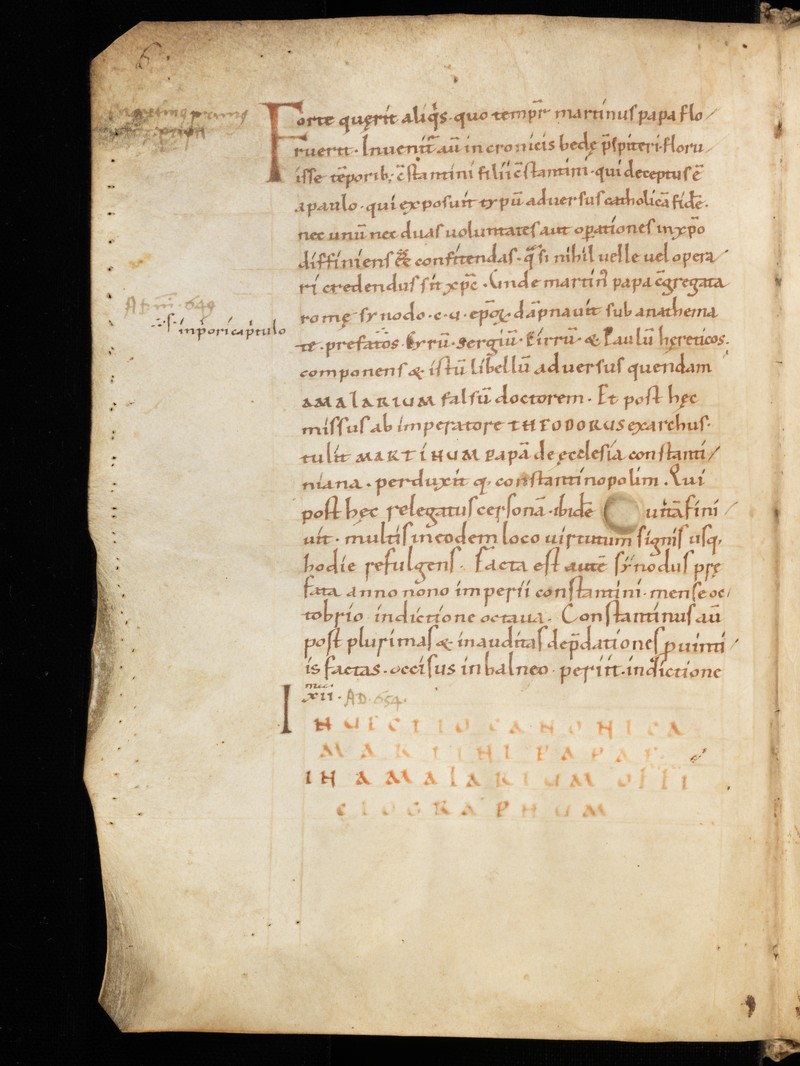 6
Forte quęrit aliq̊s· quo tempr̄e martinus papa flo/
ruerit· Inuenit̄ aū in cronicis bedę p̄sƀiteri· floru
isse tēporib; c̄stantini filii c̄stantini· qui deceptus ē
apaulo· qui exposuit typū aduersus catholicā fidē·
nec unū nec duas uoluntates aut opationes in xp̄o
diffiniens ēē confitendas· q̄si nihil uelle uel opera/
ri credendus sit xp̄c· Unde martin papa c̄gregata
romę synodo· c· u· epoꝝ· dāpnauit sub anathema
inpori capitulo
te· prefatos· Kyrū· Sergiū· Pirrū· & Paulū hęreticos·
componens & istū libellū aduersus quendam
AMALARIUM falsū doctorem· Et post hęc
missus ab imperatore THEODORUS exarchus·
tulit MARTINUM PAPĀ de ęcclesia constanti/
niana· perduxit q· constantinopolim· Qui
post hęc relegatus cersonā· ibidē C uitā fini/
uit· multis in eodem loco uirtutum signis usq,
hodie refulgens· Facta est autē synodus prę
fata anno nono imperii constantini· mense oc/
tobrio indictione octaua· Constantinus aū
post plurimas & inauditas dep̄dationes puinti/
is factas· occisus in balneo· periit· indictione
xii· AD· 654·
INUECTIO CANONICA
MARTINI PAPAE
IN AMALARIUM OFFI
CIOGRAPHUM
AD 649